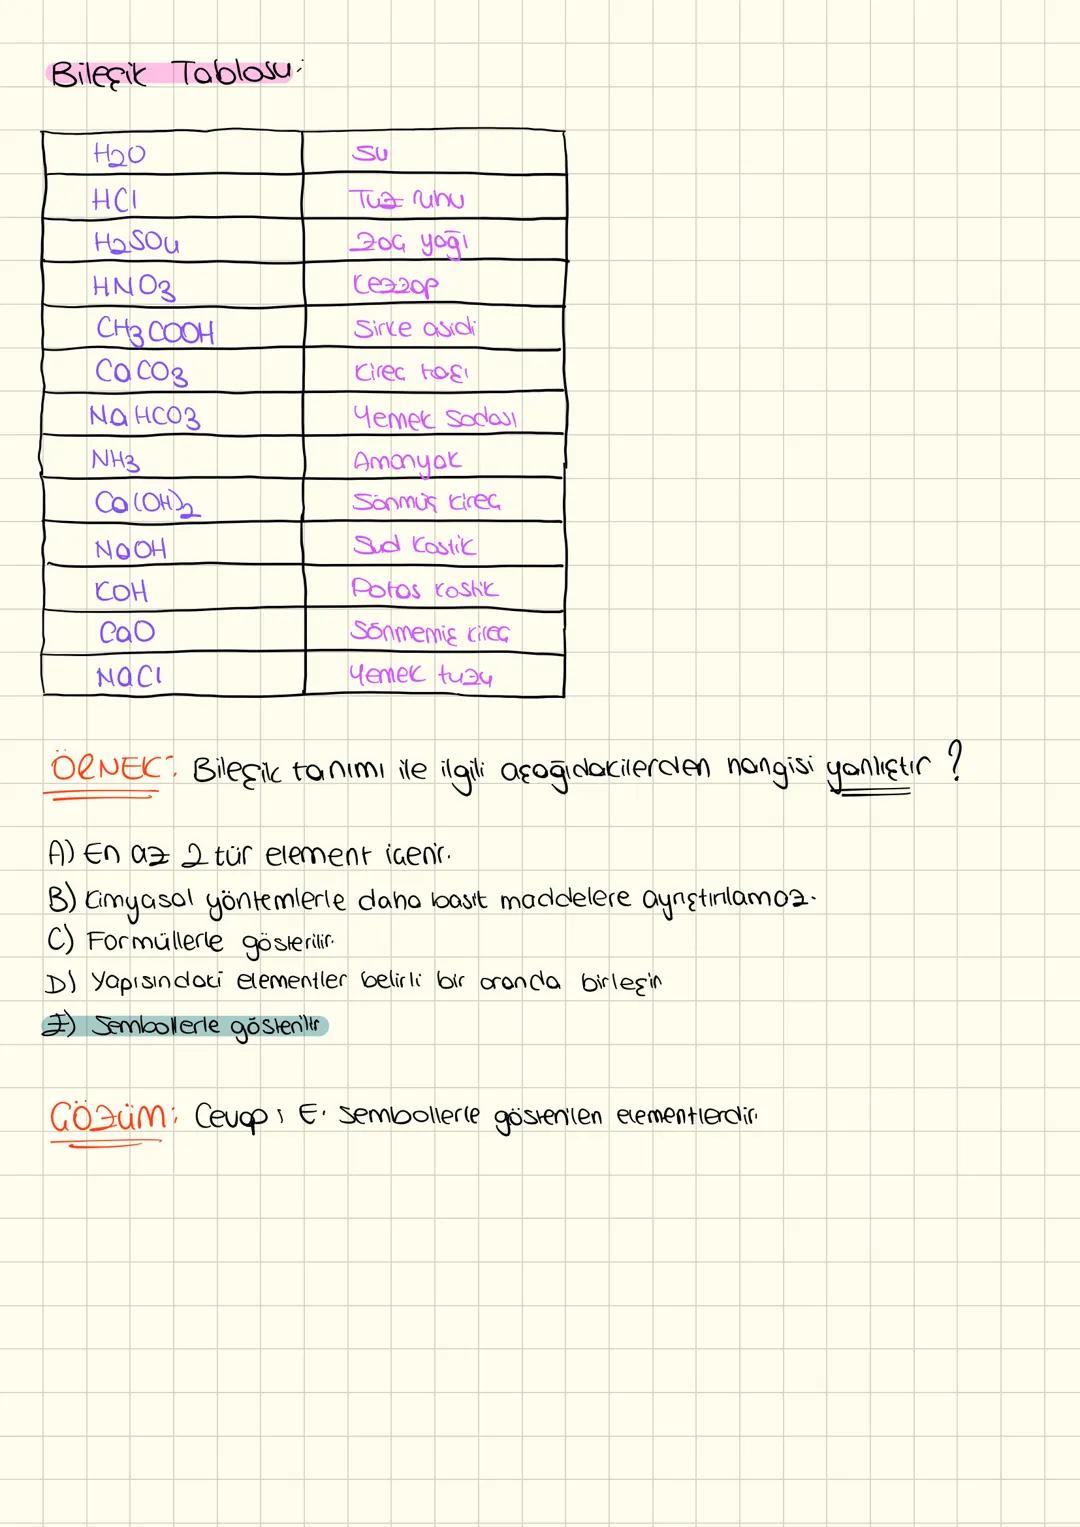 Bileşik Tablosu:
H2O Su
HCl Tuz ruhu
H2SO4 Zaç yağı
HNO3 Kezzap
CH3COOH Sirke asidi
CaCO3 Kireç taşı
NaHCO3 Yemek Sodası
NH3 Amonyak
Ca(OH)2 Sönmüş kireç
NaOH Sud Kostik
KOH Potas kostik
CaO Sönmemiş kireç
NaCl Yemek tuzu
ÖRNEK: Bileşik tanımı ile ilgili aşağıdakilerden hangisi yanlıştır ?
A) En az 2 tür element içerir.
B) Kimyasal yöntemlerle daha basit maddelere ayrıştırılamaz.
C) Formüllerle gösterilir.
D) Yapısındaki elementler belirli bir oranda birleşir
E) Sembollerle gösterilir
ÇÖZÜM: Cevap ; E. Sembollerle gösterilen elementlerdir.